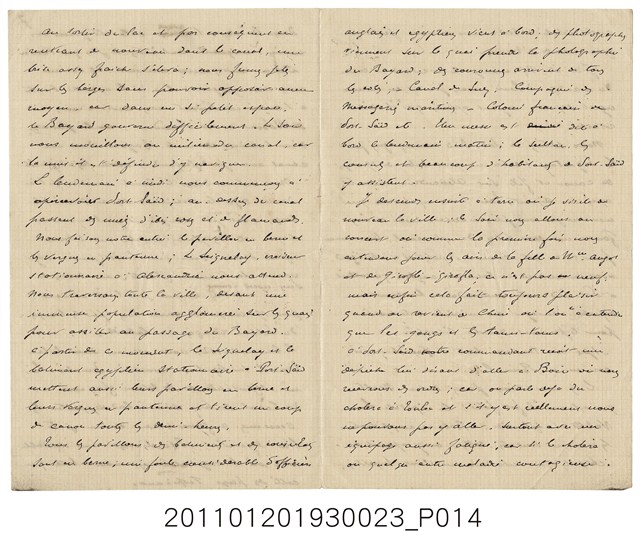 Au sortir du lac et par conséquent en
rentrant de nouveau dans le canal, une
brise assez fraîche s'éleva; nous fûmes jetés
sur les berges sans pouvoir opposer aucun
moyen, car dans un si petit espace,
le Bayard gouverne difficilement. Le soir
nous mouillons au milieu du canal, car
la nuit il est défendu d'y naviguer.
Le lendemain à midi nous commençons à
apercevoir Port-Saïd; au dessus du canal
passent des nuées d'ibis roses et de flamands.
Nous faisons notre entrée le pavillon en berne et
les vergues en pantenne; le Seignelay, croiseur
stationnaire à Alexandrie nous attend.
Nous traversons toute la ville, devant une
immense population agglomérée sur les quais
pour assister au passage du Bayard.
A partir de ce moment, le Seignelay et le
bâtiment égyptien stationnaire à Port-Saïd
mettent aussi leurs pavillons en berne et
leurs vergues en pantenne et tirent un coup
de canon toutes les demi-heures.
Tous les pavillons des bâtiments et des consulats
sont en berne; une foule considérable d'officiers
anglais et égyptiens vient à bord, des photographes
viennent sur le quai prendre la photographie
du Bayard; des couronnes arrivent de tous
les côtés, Canal de Suez, Compagnie des
Messageries maritimes, Colonie française de
Port-Saïd etc. Une messe est dite à
bord le lendemain matin; le
consuls et beaucoup d'habitants de Port-Saïd
y assistent.
Je descends ensuite à terre où je visite de
nouveau la ville; le soir nous allons au
concert où comme la première fois nous
entendons jouer les airs de la fille de Mme Angot
et de Giroflé-Girofla, ce n'est pas neuf
mais enfin cela fait toujours plaisir
quand on revient de Chine où l'on n'a entendu
que les gongs et les tam-tams!
A Port-Saïd notre commandant reçoit une
dépêche lui disant d'aller à Bône où nous
recevrons des ordres; car on parle déjà du
choléra à Toulon et s'il y est réellement nous
ne pouvons pas y aller, surtout avec un
équipage aussi fatigué, car si le choléra
ou quelqu'autre maladie contagieuse.
201101201930023_P014